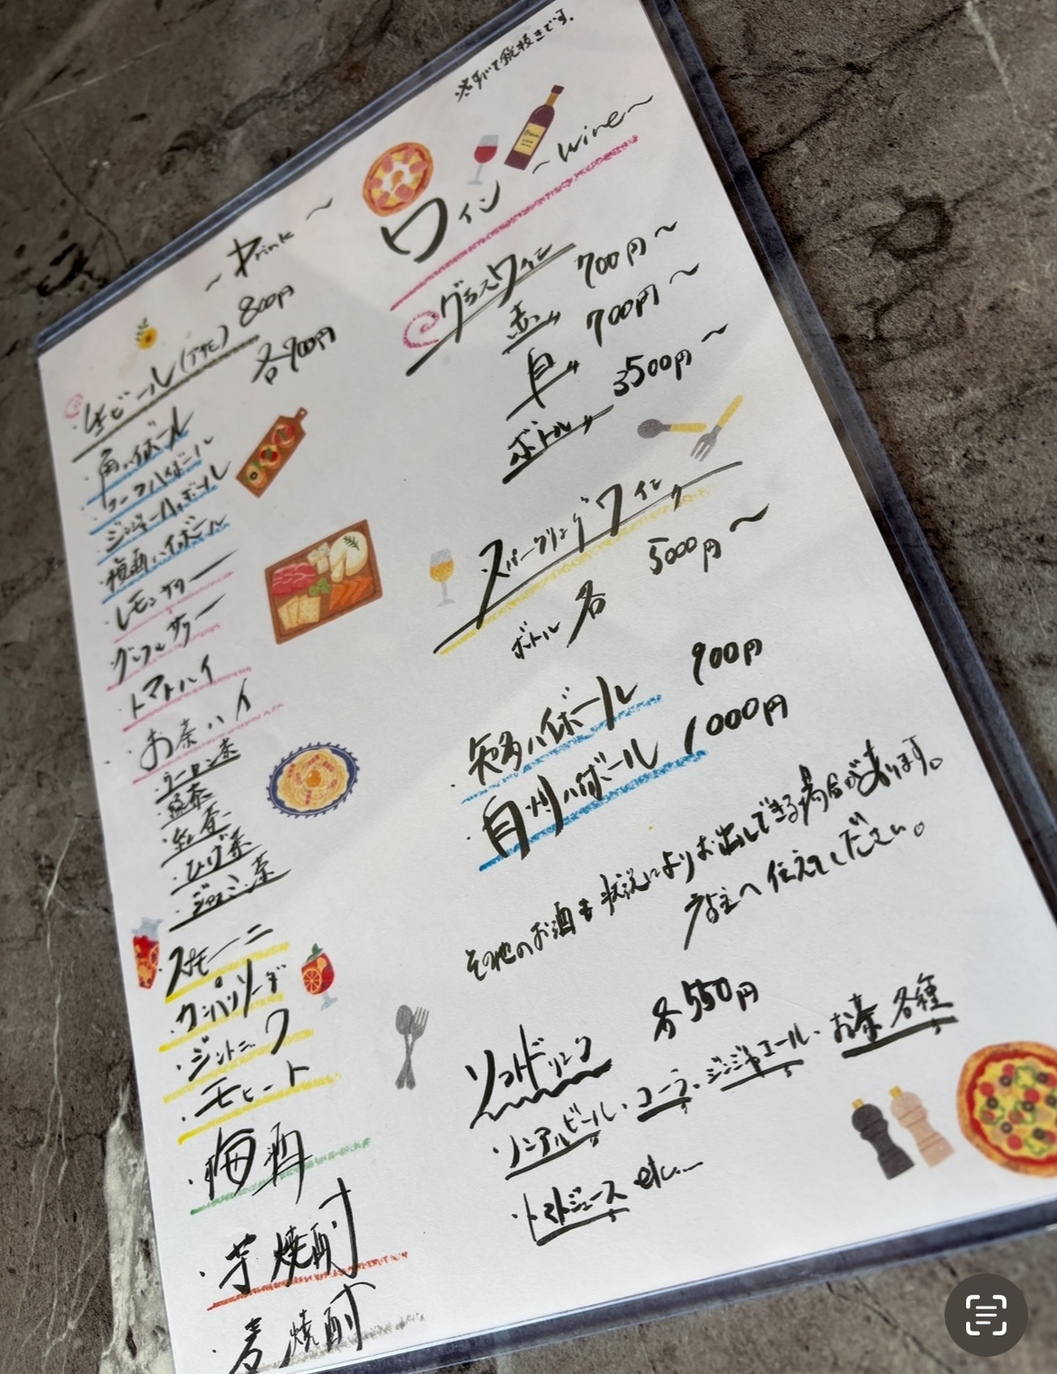 ※すべて税抜きです。
~Drink~
・生ビール(アサヒ) 800円
各700円
・角ハイボール
・コークハイボール
・ジンジャーハイボール
・梅酒ハイボール
・レモンサワー
・グレフルサワー
・トマトハイ
・お茶ハイ
・ウーロン茶
・緑茶
・紅茶
・ジャスミン茶
・スプモーニ
・カンパリソーダ
・ジントニック
・モヒート
・梅酒
・芋焼酎
・麦焼酎
ワイン ~Wine~
グラスワイン
赤 700円~
白 700円~
ボトル 3500円~
スパークリングワイン
ボトル 各 5000円~
・知多ハイボール 900円
・白州ハイボール 1000円
その他のお酒も状況によりお出しできる場合があります。
店主へ伝えてください。
ソフトドリンク 各550円
・ノンアルビール・コーラ・ジンジャエール・お茶各種
・トマトジュース etc...